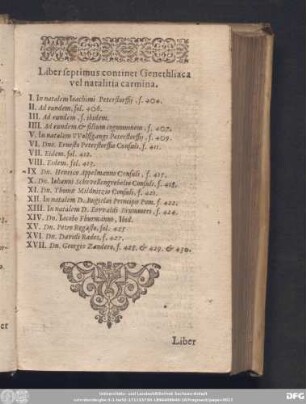 Liber septimus continet Genethliaca
vel natalitia carmina.
I. In natalem Ioachimi Petersdorffii. f. 404.
II. Ad eundem, fol. 406.
III. Ad eundem. f. ibidem.
IIII. Ad eundem & filium cognominem. f. 407.
V. In natalem VVolffgangi Petersdorffii. f. 409.
VI. Dno. Ernesto Petersdorffio Consuli. f. 411.
VII. Eidem. fol. 412.
VIII. Eidem. fol. 415.
IX Dn. Henrico Appelmanno Consuli. f. 417.
X. Dn. Iohanni Consuli. f. 418.
XI. Dn. Thomæ Mildnitzio Consuli. f. 420.
XII. In natalem D. Bugislai Principis Pom. f. 422.
XIII. In natalem D. f. 424.
XIV. Dn. Iacobo Ibid.
XV. Dn. Petro fol. 425
XVI. Dn. Davidi Rades, f. 427.
XVII. Dn. Georgio Zandero, f. 428. & 429. & 430.
Liber
er
DFG